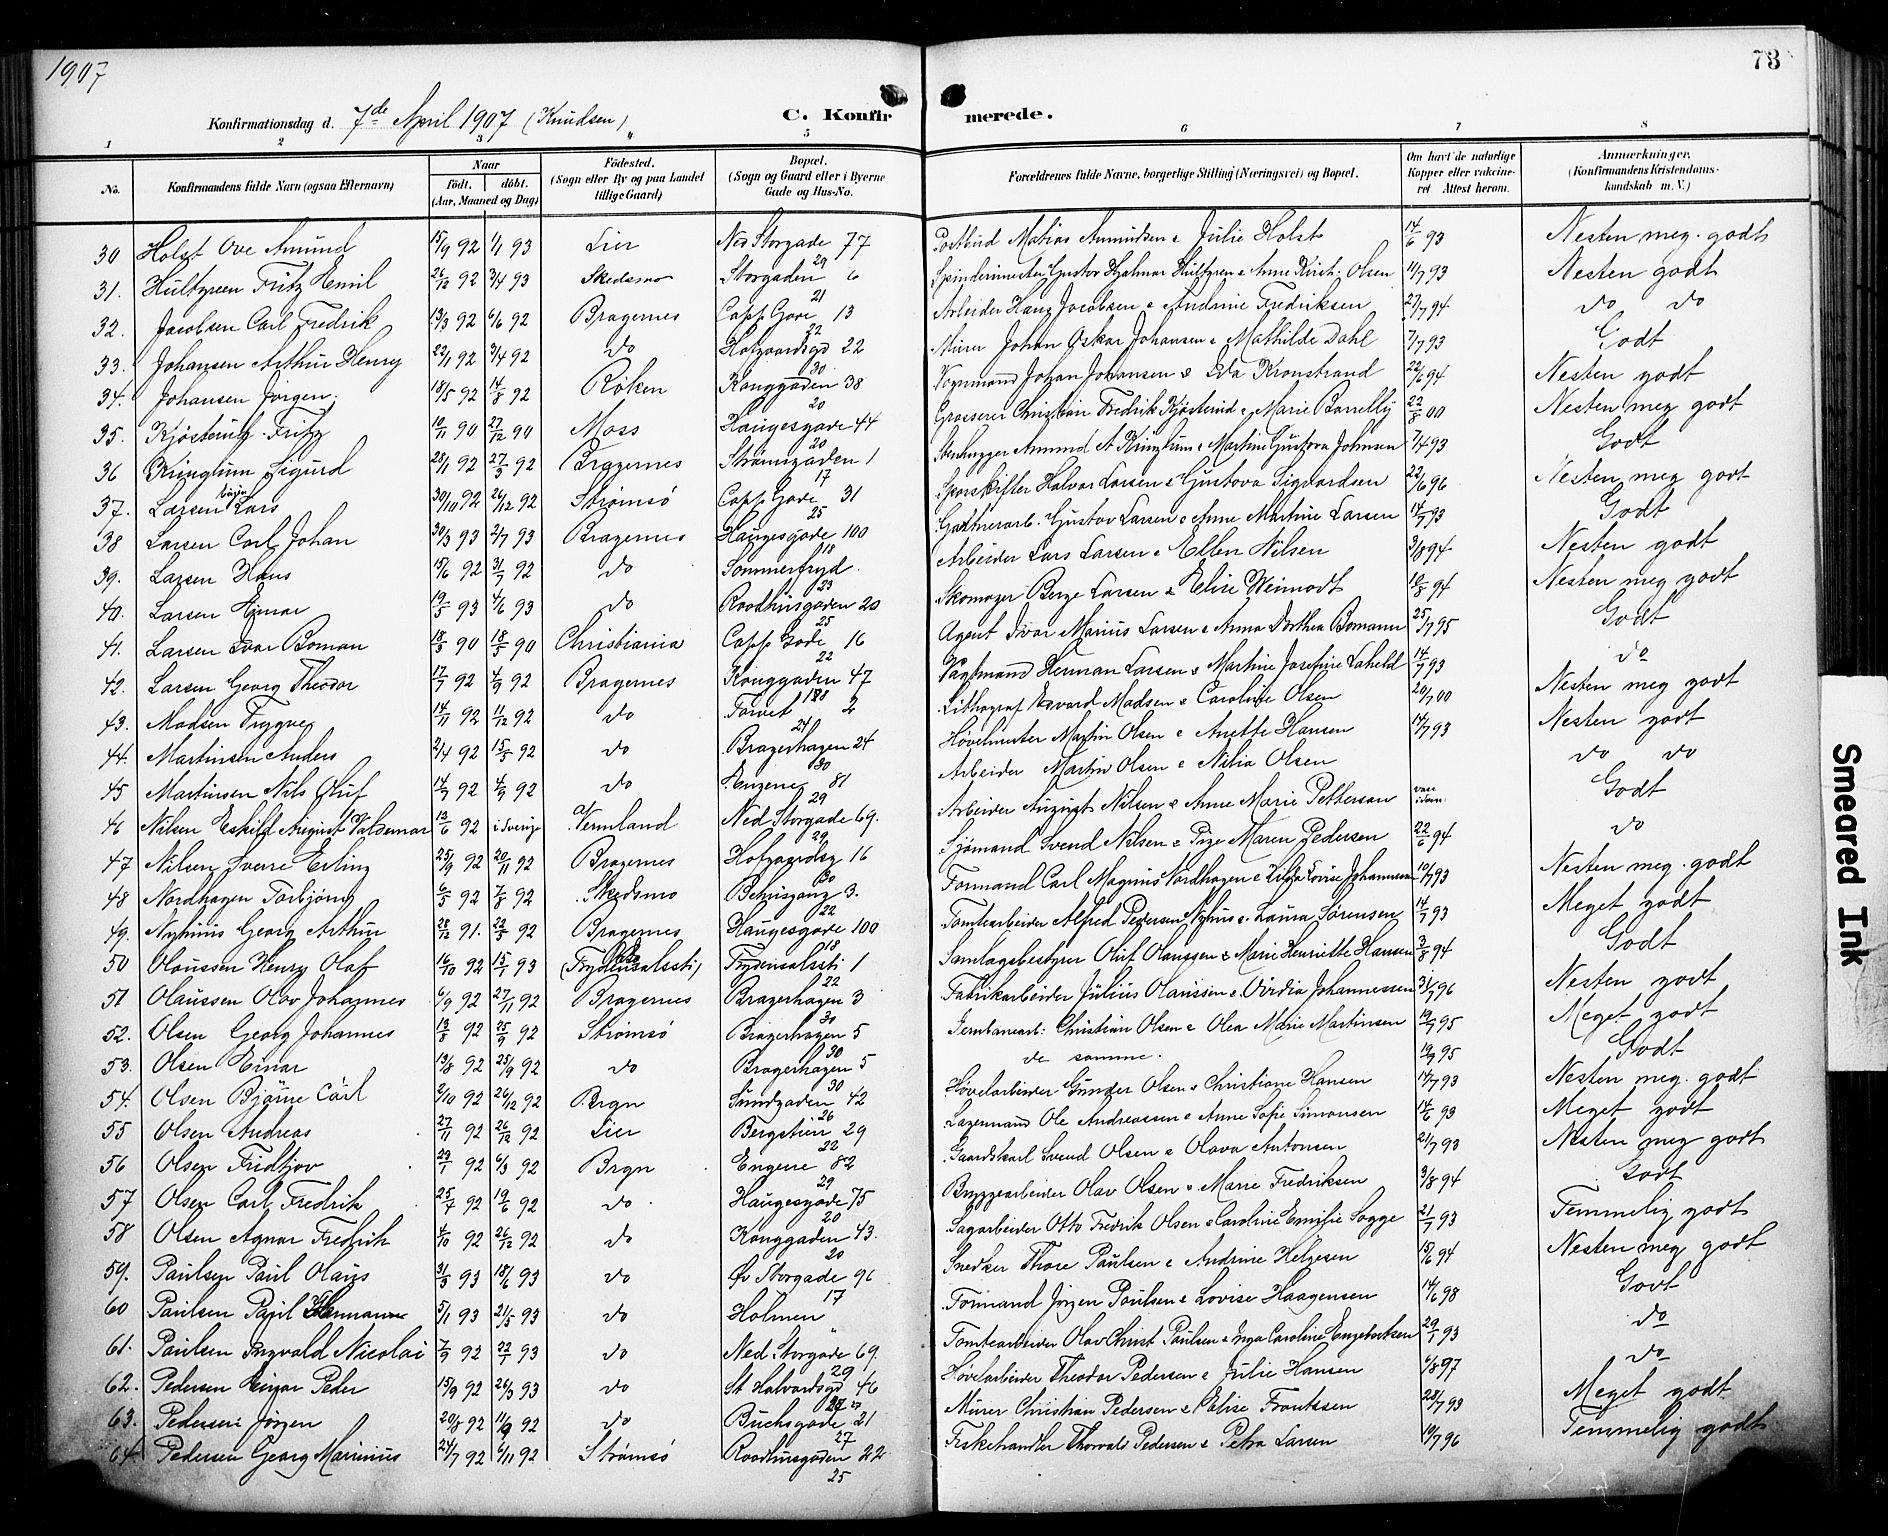 1907
78
Konfirmationsdag d. 7de April 1907 (Knudsen)
C. Konfirmerede.
1 2 3 5 6 7 8
No.
Konfirmandens fulde Navn (ogsaa Efternavn)
Naar
Födt. döbt.
(Aar, Maaned og Dag)
Födested.
(Sogn eller By og paa Landet
tillige Gaard)
Bopæl.
(Sogn og Gaard eller i Byerne
Gade og Hus-No.
Forældrenes fulde Navne, borgerlige Stilling (Næringsvei) og Bopæl.
Om havt de naturlige
Kopper eller vakcine-
ret Attest herom.
Anmærkninger.
(Konfirmandens Kristendoms-
kundskab m. V.)
30 Holst Ove Amund 15/9 92 1/1 93 Lier Ned Storgade 77 Postbud Matias Amundsen & Julie Holst 14/6 93 Nesten meg. godt
31. Hultgreen Fritz Emil 26/12 92 3/4 93 Skedsmo Storgaden 29 6 Spindemester Gustav Hjalmar Hultgren & Anne Krist. Olsen 11/7 93 Nesten godt
32. Jacobsen Carl Fredrik 13/3 92 6/6 92 Bragernes Capp. Gade 21 13 Arbeider Hans Jacobsen & Andrine Fredriksen 27/7 94 do do
33. Johansen Arthur Henry 22/1 92 3/4 92 do Hofgaardsgd 22 22 Murer Johan Oskar Johansen & Mathilde Dahl 7/7 93 Godt
34. Johansen Jörgen. 18/5 92 14/8 92 Röken Konggaden 30 38 Vognmand Johan Johansen & Ida Kronstrand 22/6 94 Nesten godt
35. Kjösterud Fritz 10/11 90 27/12 90 Moss Haugesgade 20 44 Grosserer Christian Fredrik Kjösterud & Marie Borrelly 22/8 00 Nesten meg godt
36 Kringlum Sigurd 28/1 92 27/3 92 Bragernes Strömsgaden 20 1 Stenhugger Amund A Kringlum & Martine Gustava Johnsen 7/4 93 Godt
37. Larsen Lars 30/10 92 26/12 92 Strömsö Capp. Gade 17 31 Sporskifter Halvor Larsen & Gustava Sigvardsen 22/6 96 Nesten meg godt
38 Larsen Carl Johan 30/3 93 2/7 93 Bragernes Haugesgade 25 100 Gartnerarb. Gustav Larsen & Anne Martine Larsen 14/7 93 Godt
39. Larsen Hans 15/6 92 31/7 92 do Sommerfryd 18 Arbeider Lars Larsen & Ellen Nilsen 3/8 94 Nesten godt
40. Larsen Einar 19/3 93 4/6 93 do Raadhusgaden 23 20 Skomager Berge Larsen & Elise Weimodt 10/8 94 Nesten meg godt
41. Larsen Ivar Boman 18/3 90 18/5 90 Christiania Capp Gade 25 16 Agent Ivar Marius Larsen & Anna Dorthea Bomann 25/7 95 Godt
42. Larsen Georg Theodor 17/7 92 4/9 92 Bragernes Konggaden 22 47 Vagtmand Herman Larsen & Martine Josefine Laheld 14/7 93 do
43. Madsen Trygve 14/11 92 11/12 92 do Torvet 18 2 Lithograf Edvard Madsen & Caroline Olsen 20/7 00 Nesten meg godt
44. Martinsen Anders 2/4 92 15/5 92 do Bragerhagen 24 24 Hövelmester Martin Olsen & Anette Hansen 14/7 93 Nesten godt
45 Martinsen Nils Oluf 14/7 92 4/9 92 do Engene 30 81 Arbeider Martin Olsen & Nilia Olsen do do
46 Nilsen Eskild August Valdemar 12/6 92 i Sverige Vermland Ned Storgade 29 69. Arbeider August Nilsen & Anne Marie Petterson Godt
47 Nilsen Sverre Erling 25/9 92 20/11 92 Bragernes Hofgaardsg 29 16 Sjömand Svend Nilsen & Maren Pedersen 22/6 94 do
48 Nordhagen Torbjörn 6/5 92 7/8 92 Skedsmo 30 3. Formand Carl Magnus Nordhagen & Lovise Johannesen 10/7 93 Nesten meg. godt
49. Nyhuus Georg Arthur 28/12 91. 22/5 92 Bragernes Haugesgade 22 100 Tomtearbeider Alfred Pedersen Nyhus & Laura Sörensen 14/7 93 Meget godt
50 Olaussen Henry Olaf 16/10 92 15/1 93 (Frydendalssti) Frydendalssti 18 1 Samlagsbestyrer Oluf Olaussen & Marie Henriette Hansen 3/8 94 Godt
51 Olaussen Olav Johannes 6/9 92 27/11 92 Bragernes Bragerhagen 22 3 Fabrikarbeider Julius Olaussen & Ovidia Johannessen 31/7 96 Nesten godt
52. Olsen Georg Johannes 13/8 92 25/9 92 Strömsö Bragerhagen 30 5 Jernbanearb. Christian Olsen & Olea Marie Martinsen 19/7 95 Meget godt
53. Olsen Einar 13/8 92 25/9 92 do Bragerhagen 30 5 de samme. 19/7 95 Godt
54. Olsen Bjarne Carl 2/10 92 26/12 92 Brgn Sundgaden 30 42 Hövelarbeider Gunder Olsen & Christiane Hansen 14/7 93 Nesten meg. godt
55 Olsen Andreas 27/11 92 26/12 92 Lier Bergstien 26 29 Lagermand Ole Andreassen & Anne Sofie Simonsen 14/6 93 Meget godt
56 Olsen Fridtjov 29/1 92 6/3 92 Brgn Engene 22 82 Gaardskarl Svend Olsen & Olava Antonsen 21/7 93 Nesten meg godt
57 Olsen Carl Fredrik 25/4 92 19/6 92 do. Haugesgade 29 75 Bryggearbeider Olav Olsen & Marie Fredriksen 3/8 94 Godt
58 Olsen Agnar Fredrik 4/10 92 26/12 92 do Konggaden 20 43. Sagarbeider Otto Fredrik Olsen & Caroline Emilie Sogge 21/7 93 Temmelig godt
59. Paulsen Paul Olaus 31/3 93 18/6 93 do Öv Storgade 20 96 Snedker Thore Paulsen & Andrine Helgesen 15/6 94 Nesten meg godt
60 Paulsen Paul Hermann 5/1 93 21/5 93 do Holmen 17 Formand Jörgen Paulsen & Lovise Haagensen 14/6 98 Godt
61. Paulsen Ingvald Nicolai 7/9 92 22/1 93 do Ned Storgade 69. Tomtearbeider Olav Christ Paulsen & Inga Caroline Engebretsen 29/1 93 do
62. Pedersen Einar Peder 15/9 92 26/3 93 do St Halvardsgd 29 46 Hövelarbeider Theodor Pedersen & Julie Hansen 6/8 97 do
63. Pedersen Jörgen 20/8 92 11/9 92 do Buchsgade 21 Murer Christian Pedersen & Elise Frantssen 28/7 93 Meget godt
64 Pedersen Georg Marinius 24/7 92 6/11 92 Strömsö Raadhusgaden 27 22 25 Fiskehandler Thorvald Pedersen & Petra Larsen 19/7 96 Temmelig godt
Smeared Ink